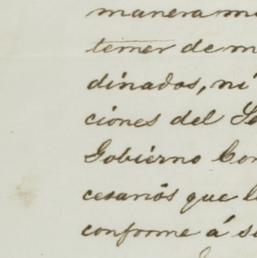 manera m
temer de m
dinados, ni
ciones del Se
Gobierno Con
cesarios que l
conforme á s